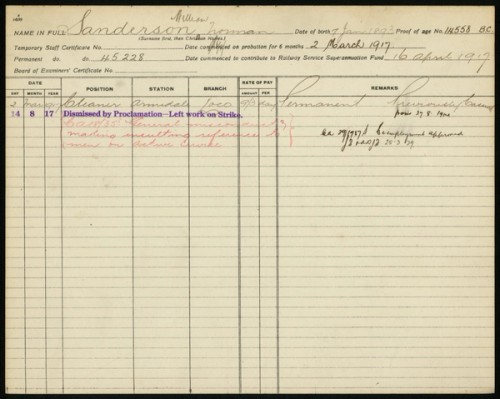 Millow
NAME IN FULL Sanderson Norman Date of birth 7 Jan 1895 Proof of age No. 14558 BC
(Surname first, then Christian Names.)
Temporary Staff Certificate No. Date commenced on probation for 6 months 2 March 1917
Permanent do. do 45228 Date commenced to contribute to Railway Service Superannuation Fund 16 April 1917
Board of Examiners' Certificate No.
DATE POSITION STATION BRANCH RATE OF PAY REMARKS
DAY MONTH YEAR AMOUNT PER
2 Mar 17 Cleaner Armidale Loco day Permanent Previously Casual
from 29 8
14 8 17 Dismissed by Proclamation—Left work on Strike.
General misconduct &
making insulting reference to
men on Active Service
Reemployment approved